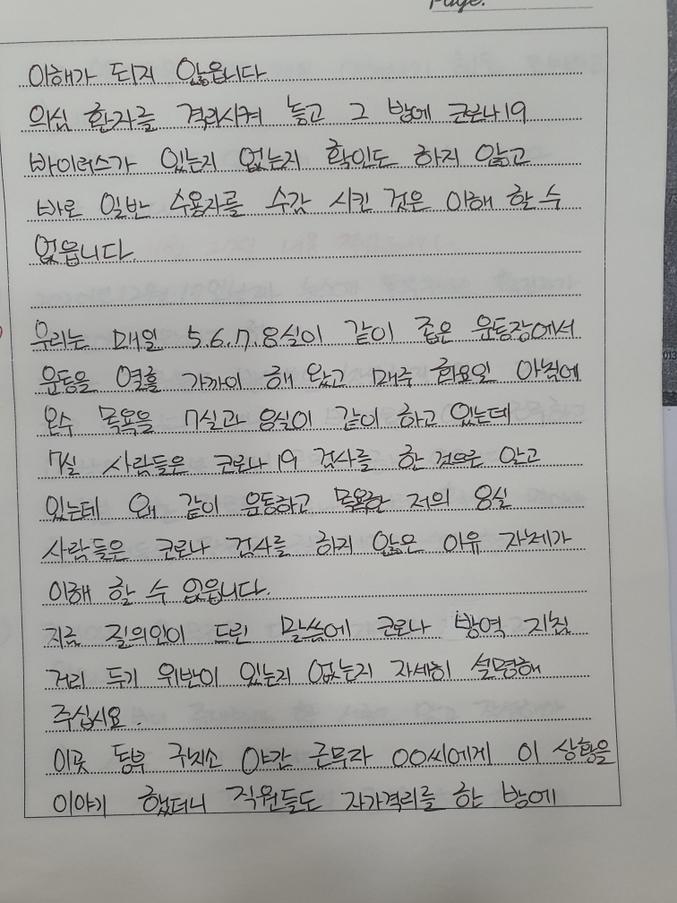 Page.
이해가 되지 않읍니다
의심 환자를 격리시켜 놓고 그 방에 코로나19
바이러스가 있는지 없는지 확인도 하지 않고
바로 일반 수용자를 수감 시킨 것은 이해 할 수
없읍니다.
우리는 매일 5.6.7.8실이 같이 좁은 운동장에서
운동을 열흘 가까이 해 왔고 매주 화요일 아침에
온수 목욕을 7실과 8실이 같이 하고 있는데
7실 사람들은 코로나19 검사를 한 것으로 알고
있는데 왜 같이 운동하고 목욕한 저의 8실
사람들은 코로나 검사를 하지 않은 이유 자체가
이해 할 수 없읍니다.
지금 질의인이 드린 말씀에 코로나 방역 지침
거리 두기 위반이 있는지 없는지 자세히 설명해
주십시요.
이곳 동부 구치소 야간 근무자 00씨에게 이 상황을
이야기 했더니 직원들도 자가격리를 한 방에